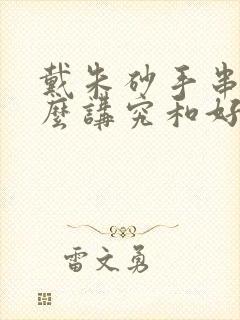 戴朱砂手串
麼講究和好
雷文勇